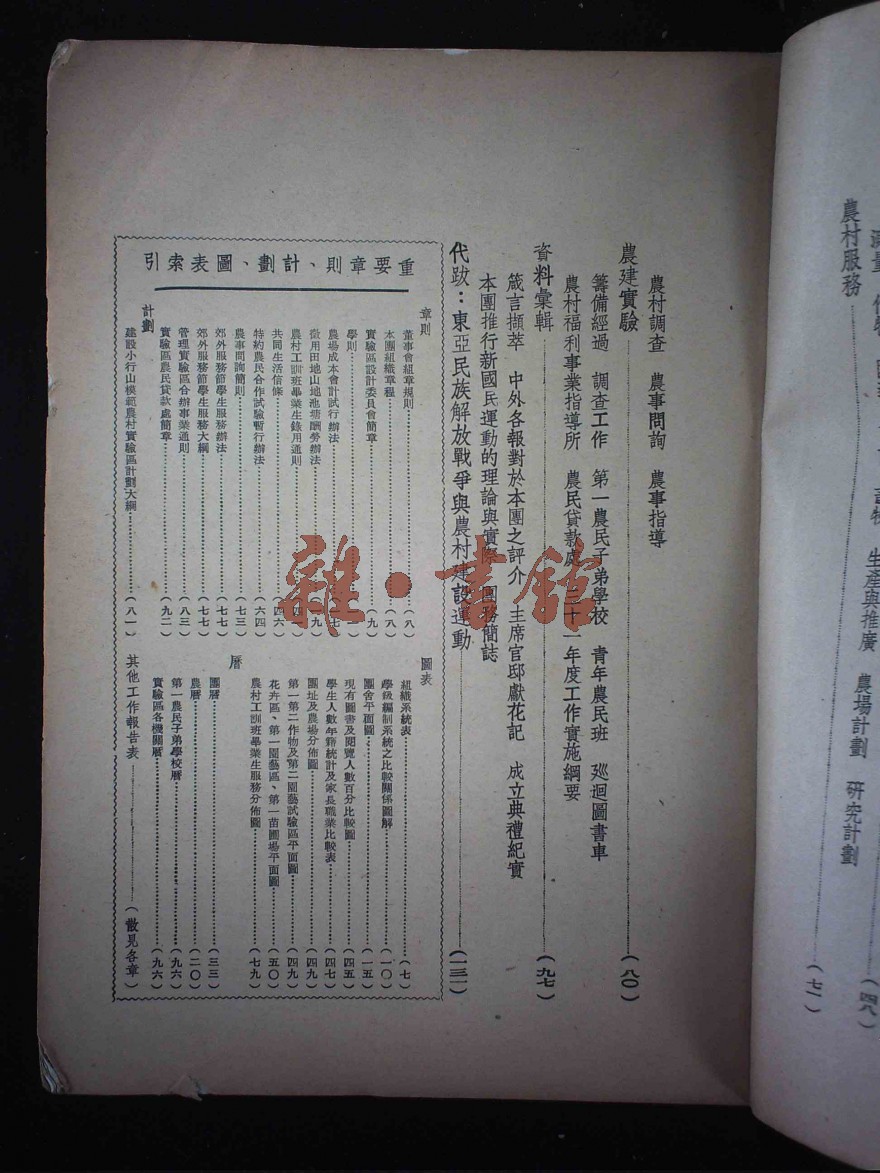 生產與推廣　農場計劃　研究計劃
（四八）
農村服務……（七一）
農村調查　農事問詢　農事指導
農建實驗……（八〇）
籌備經過　調查工作　第一農民子弟學校　青年農民班　巡迴圖書車
農村福利事業指導所　農民貸款處　三十二年度工作實施綱要
資料彙輯……（九七）
箴言擷萃　中外各報對於本團之評介　主席官邸獻花記　成立典禮紀實
本團推行新國民運動的理論與實際　團務簡誌
代跋：東亞民族解放戰爭與農村建設運動……（一三一）
重要章則、計劃、圖表索引
章則
董事會組章規則……（八）
本團組織章程……（八）
實驗區設計委員會簡章……（九）
學則……
農場成本會計試行辦法……
徵用田地山地池塘酬勞辦法……
農村工訓班畢業生錄用通則……
共同生活信條……（四六）
特約農民合作試驗暫行辦法……（六四）
農事問詢簡則……（七三）
郊外服務節學生服務辦法……（七七）
郊外服務節學生服務大綱……（七七）
管理實驗區合辦事業通則……（八三）
實驗區農民貸款處簡章……（九二）
計劃
建設小行山模範農村實驗區計劃大綱……（八一）
圖表
組織系統表……（七）
學級編制系統之比較關係圖解……（一〇）
團舍平面圖……（一五）
現有圖書及閱覽人數百分比較圖……（四五）
學生人數年籍統計及家長職業比較表……（四七）
團址及農場分佈圖……（四九）
第一第二作物及第二園藝試驗區平面圖……（四九）
花卉區、第一園藝區、第一苗圃場平面圖……（五〇）
農村工訓班畢業生服務分佈圖……（七九）
曆
團曆……（三三）
農曆……（二〇）
第一農民子弟學校曆……（九六）
實驗區各機關曆……（九六）
其他工作報告表……（散見各章）
雜·書館